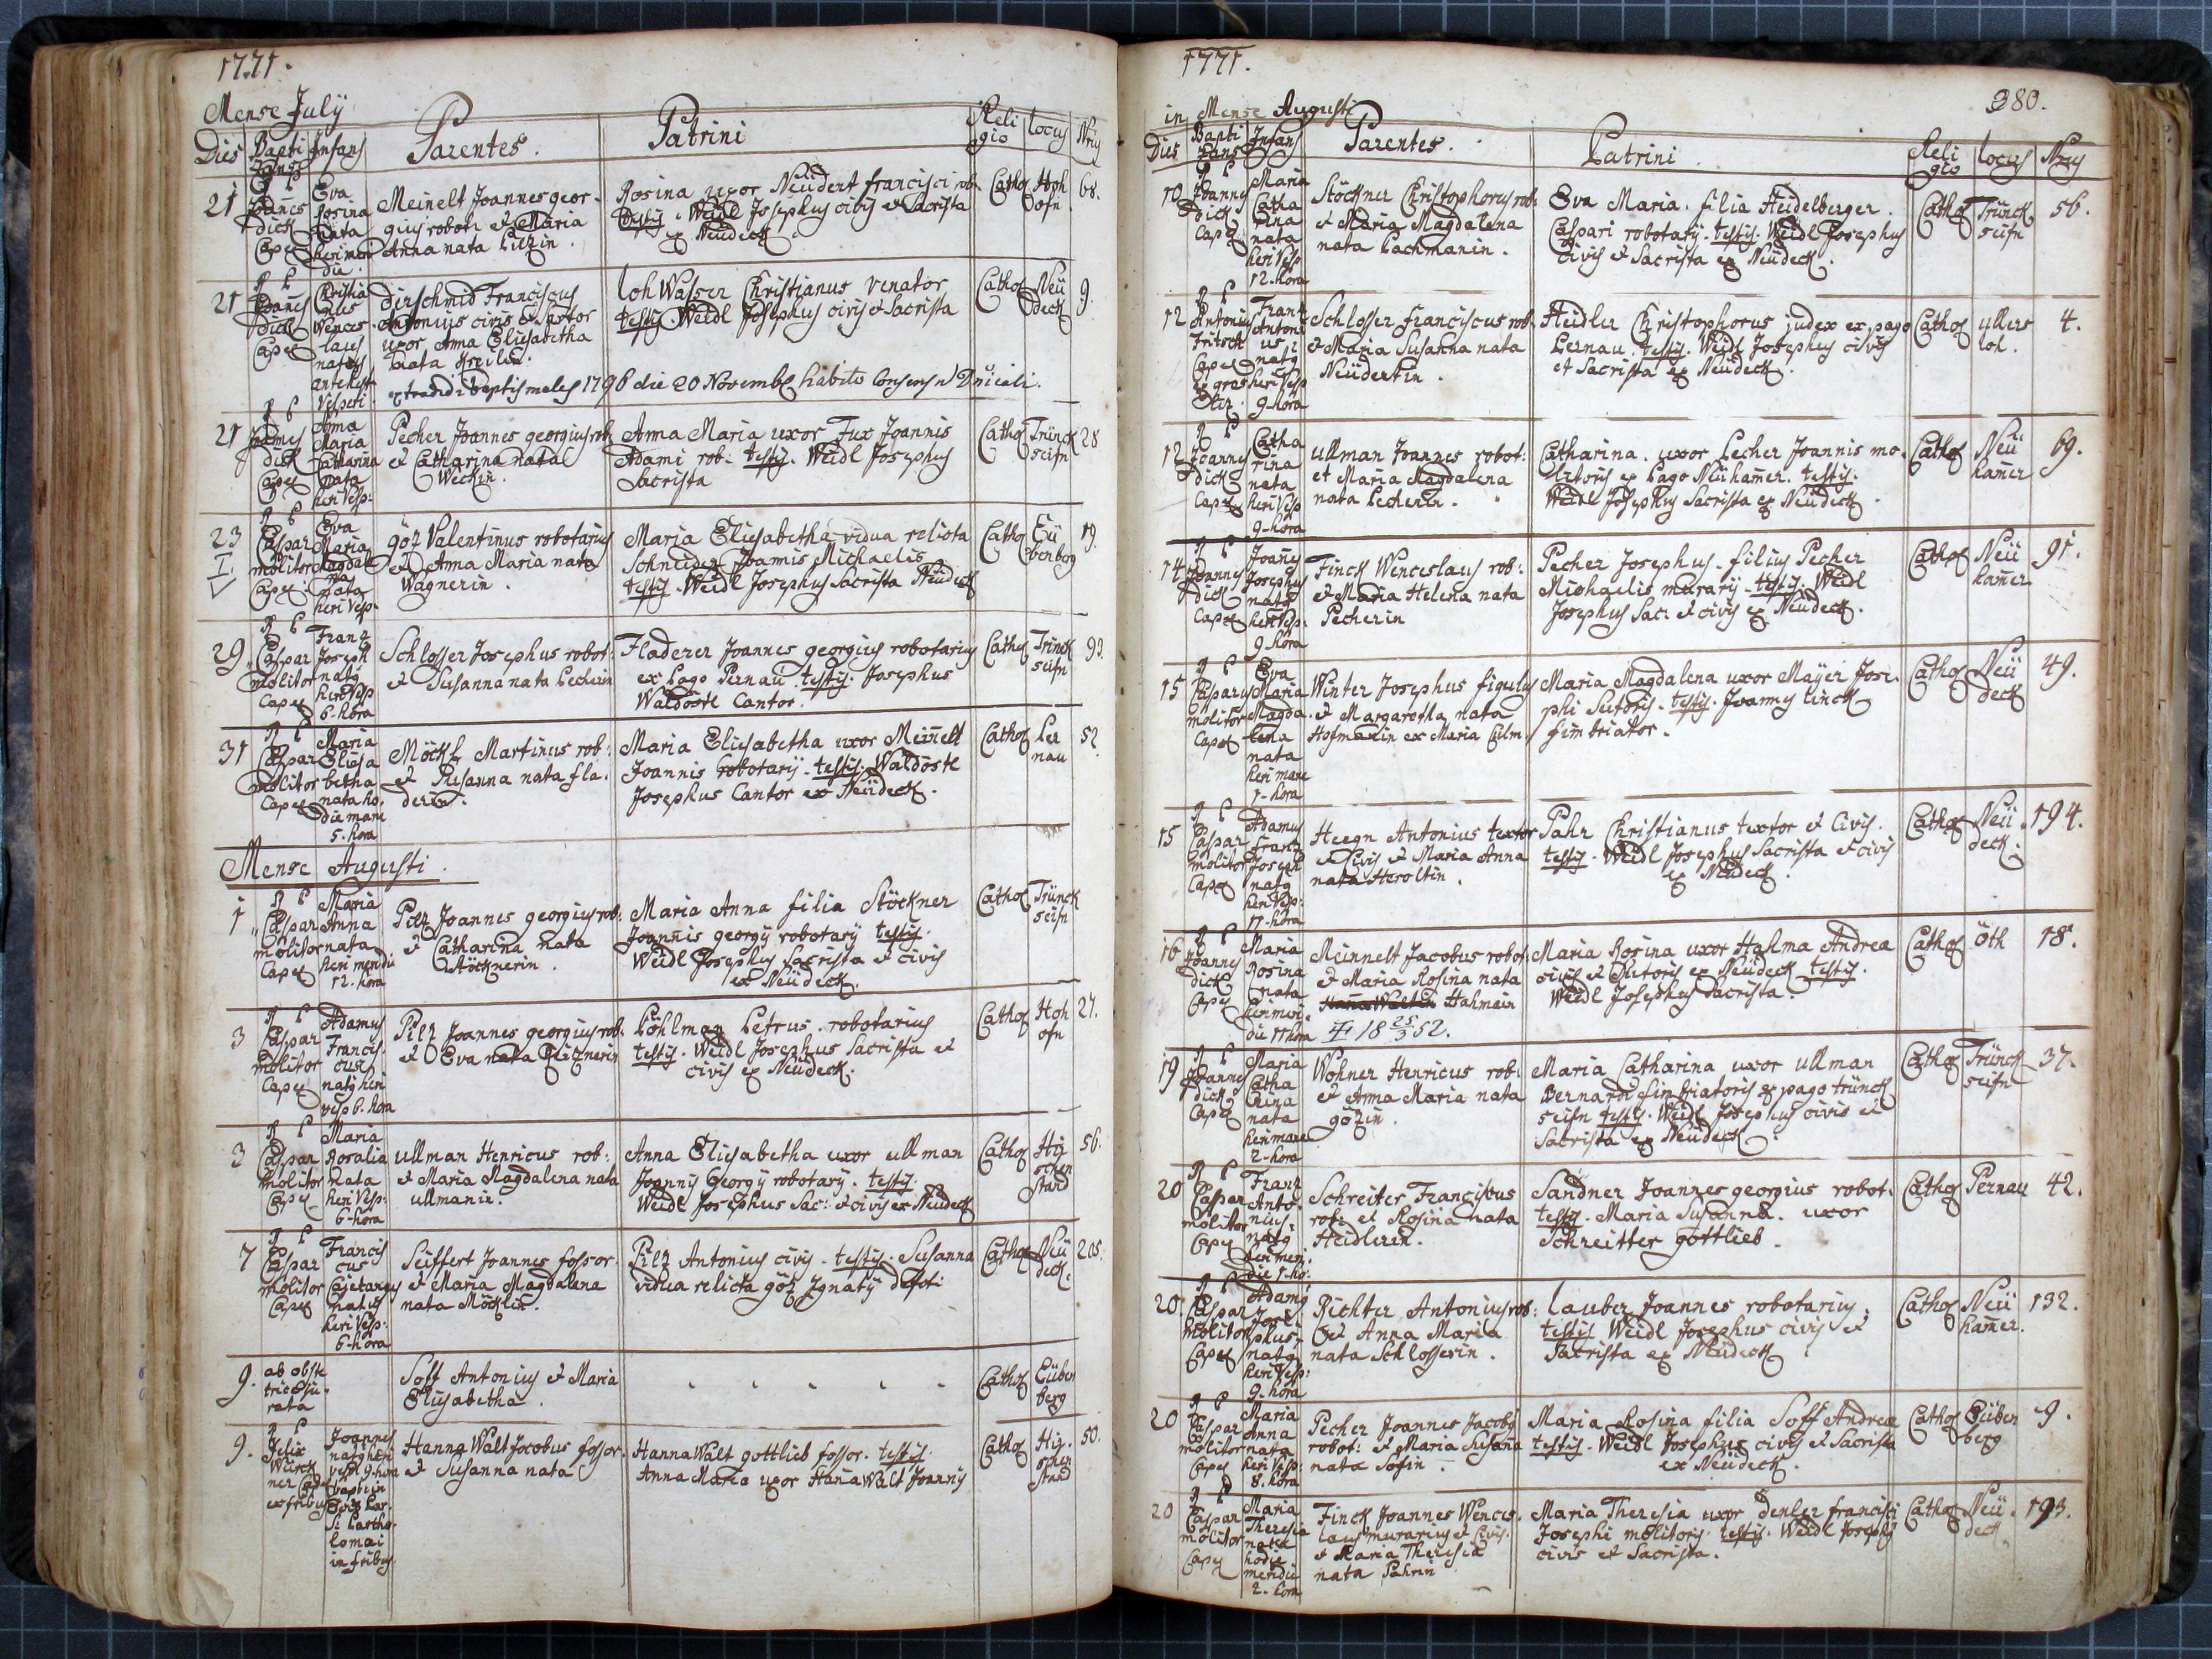 1771.
Mense July
Dies Bapti zans Infans Parentes. Patrini Religio locus Nrus
21 Joanes dick Capel Eva Rosina nata heri meri die
Meinelt Joannes geor-
gius robot: et Maria
Anna nata
Rosina uxor Neudert francisci rob.
testis. Weidl Josephus civis et Sacrista
ex Neudeck
Cathol Hoh ofn 68.
21 Joanes dick Capel Christia nus Wences laus natus
Dirschmid Franciscus
Antonius civis et
uxor Anna Elisabetha
nata
lohWasser Christianus venator
testis. Weidl Josephus civis et Sacrista
Cathol Neu deck 9.
extradidi baptismales 1796 die 20 Novemb habito Consensu Dnicali.
21 Joannes dick Capel Anna Maria Catharina nata heri Vesp:
Pecher Joannes georgius rob:
et Catharina nata
Weckin.
Anna Maria uxor Fux Joannis
Adami rob: testis. Weidl Josephus
Sacrista
Cathol Trünck seifn 28
23 Caspar molitor Capel. Eva Maria Magdale na nata heri Vesp:
göz Valentinus robotarius
et Anna Maria nata
Wagnerin.
Maria Elisabetha vidua relicta
Schneider Joannis Michaelis
testis. Weidl Josephus Sacrista Neudeck
Cathol Eü benberg 19.
29 Caspar molitor Capel Franz Joseph natq heri Vesp 6. hora
Schlosser Josephus robot:
et Susanna nata Pecherin
Fladerer Joannes georgius robotarius
ex Pago Pernau. testis. Josephus
Waldöstl Cantor.
Cathol Trünck seifn 93.
31 Caspar molitor Capel Maria Elisa betha nata ho. die mane 5. hora
Möckl Martinus rob:
et Susanna nata fla.
derin.
Maria Elisabetha uxor Meinelt
Joannis robotarij. testis. Waldöstl
Josephus Cantor ex Neudeck.
Cathol Per nau 52.
Mense Augusti.
1 Caspar molitor Capel Maria Anna nata heri meridie 12. hora
Pilz Joannes georgius rob:
et Catharina nata
Stöcknerin.
Maria Anna filia Stöckner
Joannis georgij robotarij testis.
Weidl Josephus Sacrista et civis
ex Neudeck.
Cathol Trünck seifn
3 Caspar molitor Capel Adamus Francis cus natq heri vesp 6. hora
Pilz Joannes georgius rob.
et Eva nata
Pöhlman Petrus. robotarius
testis. Weidl Josephus Sacrista et
civis ex Neudeck.
Cathol Hoh ofn 27.
3 Caspar molitor Capel Maria Rosalia nata heri Vesp: 6-hora
ullman Henricus rob:
et Maria Magdalena nata
ullmanin.
Anna Elisabetha uxor ullman
Joannis Georgij robotarij. testis.
Weidl Josephus Sac: et civis ex Neudeck
Cathol Hir schen stand 56.
7 Caspar molitor Capel Francis cus Cajetanus natus heri Vesp: 6-hora
Seiffert Joannes fossor
et Maria Magdalena
nata Möcklin.
Pilz Antonius civis. testis. Susanna
vidua relicta göz Ignatij defoti
Cathol Neu deck. 205.
9. ab obste trice
Soff Antonius et Maria
Elisabetha.
Cathol Eüben berg
9. Felix Joannes natq heri vesp 9-hora
HannaWalt Jacobus fossor.
et Susanna nata
HannaWalt gottlieb fossor. testis.
Anna Maria uxor HanaWalt Joannis
Cathol Hir. schen stand 50.
1771.
380.
in Mense Augusti
Dies Bapti zans Infans Parentes. Patrini. Religio locus Nrus
10 Joannes dick Capel Maria Catha rina nata heri Vesp 12-hora
Stöckner Christophorus rob:
et Maria Magdalena
nata Lachmanin.
Eva Maria. filia Heidelberger.
Caspari robotarij. testis. Weidl Josephus
Civis et Sacrista ex Neudeck.
Cathol Trünck seifn 56.
12 Antonius fritsch Capel Franz Antoni us natq heri Vesp 9-hora
Schlosser franciscus rob:
et Maria Susanna nata
Neudertin.
Heidler Christophorus judex ex pago
Pernau. testis. Weidl Josephus civis
et Sacrista ex Neudeck.
Cathol ullers loh. 4.
12 Joannes dick Capel Catha rina nata heri Vesp 9-hora
ullman Joannes robot:
et Maria Magdalena
nata Pecherin.
Catharina. uxor Pecher Joannis mo.
litoris ex Pago Neuhamer. testis.
Weidl Josephus Sacrista ex Neudeck.
Cathol Neu hamer 69.
14 Joannes dick Capel Joanes Josephus natq heri Vesp: 9-hora
Finck Wenceslaus rob:
et Maria Helena nata
Pecherin
Pecher Josephus. filius Pecher
Michaelis murarij. testis. Weidl
Josephus Sac: et civis ex Neudeck.
Cathol Neu hamer 91.
15 Casparus molitor Capel Eva Maria Magda. lena nata heri mane 1-hora
Winter Josephus figulus
et Margaretha nata
Hofmanin ex Maria Culm
Maria Magdalena uxor Mayer Jose.
phi Sutoris. testis. Joannes linck
fimbriator.
Cathol Neu deck 49.
15 Caspar molitor Capel Adamus Franz Joseph natq heri Vesp: 11-hora
Heegn Antonius textor
et Civis et Maria Anna
nata Heroltin.
Pahr Christianus textor et Civis.
testis. Weidl Josephus Sacrista et civis
ex Neudeck
Cathol Neu deck. 194.
16 Joannes dick Capel Maria Rosina nata heri meri. die 11 hora
Meinnelt Jacobus robot.
et Maria Rosina nata
Hahmin
18 25/3 52.
Maria Rosina uxor Hahma Andrea
civis et Sutoris ex Neudeck testis.
Weidl Josephus Sacrista.
Cathol Öth 18.
19 Joannes dick Capel Maria Catha rina nata heri mane 2-hora
Wohner Henricus rob:
et Anna Maria nata
gözin.
Maria Catharina uxor ullman
Bernardi fimbriatoris ex pago trünck
seifn testis. Weidl Josephus civis et
Sacrista ex Neudeck.
Cathol Trünck seifn 37.
20 Caspar molitor Capel Franz Anto. nius. natq heri meri. die 1-ho:
Schreiter Franciscus
rob: et Rosina nata
Heidlerin.
Sandner Joannes georgius robot.
testis. Maria Susanna. uxor
Schreitter gottlieb.
Cathol Pernau 42.
20. Caspar molitor Capel Adamq Jose. phus. natq heri Vesp: 9-hora
Richter Antonius rob:
et Anna Maria
nata Schlosserin.
lauber Joannes robotarius.
testis Weidl Josephus civis et
Sacrista ex Neudeck
Cathol Neu hamer. 132.
20 Caspar molitor Capel Maria Anna nata heri Vesp: 8. hora
Pecher Joannes Jacobq
robot: et Maria Susana
nata Sofin.
Maria Rosina filia Soff Andrea
testis. Weidl Josephus civis et Sacrista
ex Neudeck.
Cathol Eüben berg 9.
20 Caspar molitor Capel Maria Theresia nata hodie meridie 2-hora
Finck Joannes Wences.
laus murarius et Civis.
et Maria Theresia
nata Pahrin
Maria Theresia uxor Denler francisci
Josephi molitoris testis. Weidl Josephq
civis et Sacrista.
Cathol Neu deck 193.